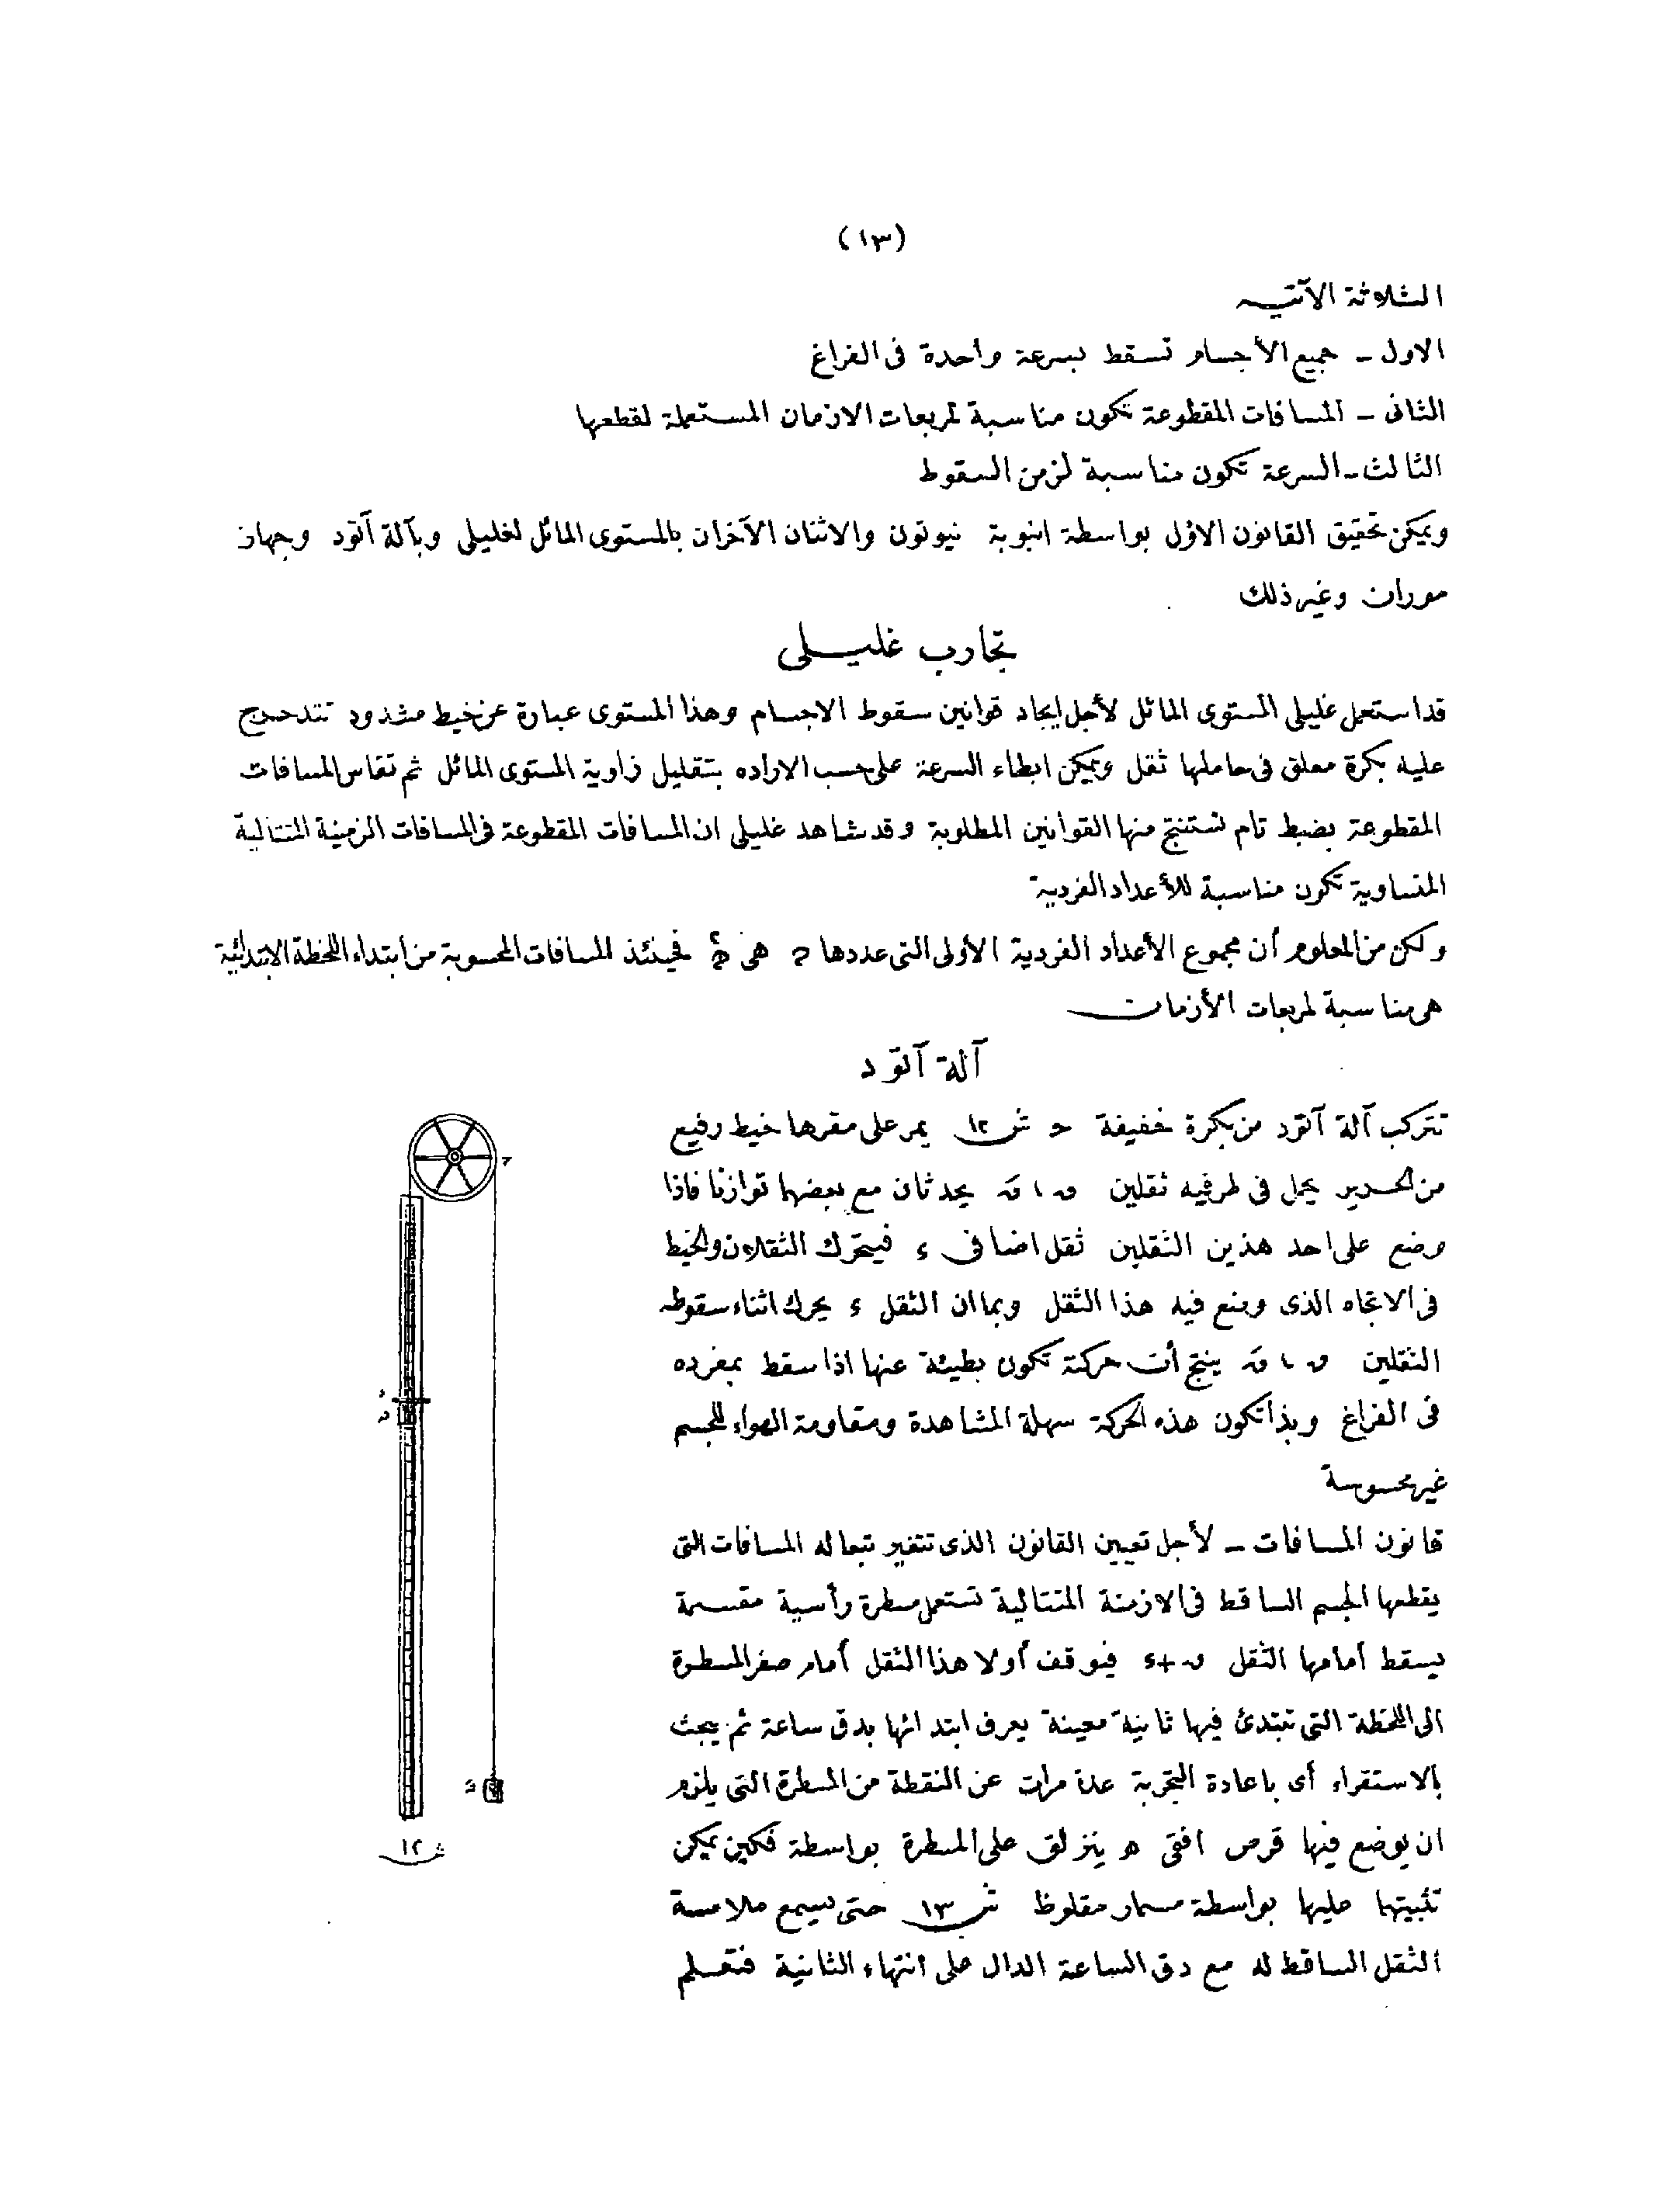 (١٣)
الثلاثة الآتيه
الاول ـ جميع الأجسام تسقط بسرعة واحدة فى الفراغ
الثانى ـ المسافات المقطوعة تكون مناسبة لمربعات الازمان المستعملة لقطعها
الثالث ـ السرعة تكون مناسبة لزمن السقوط
ويمكن تحقيق القانون الاول بواسطة انبوبة نيوتون والاثنان الآخران بالمستوى المائل لغليلى وبآلة آتود وجهاز
موران وغير ذلك
تجارب غليلى
قد استعمل غليلى المستوى المائل لأجل ايجاد قوانين سقوط الاجسام وهذا المستوى عبارة عن خيط مشدود تتدحرج
عليه بكرة معلق فى حاملها ثقل ويمكن ابطاء السرعة على حسب الاراده بتقليل زاوية المستوى المائل ثم تقاس المسافات
المقطوعة بضبط تام تستنتج منها القوانين المطلوبة وقد شاهد غليلى ان المسافات المقطوعة فى المسافات الزمنية المتتالية
المتساوية تكون مناسبة للأعداد الفردية
ولكن من المعلوم أن مجموع الأعداد الفردية الأولى التى عددها هى فحينئذ المسافات المحسوبة من ابتداء اللحظة الابتدائية
هى مناسبة لمربعات الأزمان
آلة آتود
تتركب آلة آتود من بكرة خفيفة ح ش ١٢ يمر على مقرها خيط رفيع
من الحرير يحمل فى طرفيه ثقلين يحدثان مع بعضهما توازنا فاذا
وضع على احد هذين الثقلين ثقل اضافى ء فيتحرك الثقلان والخيط
فى الاتجاه الذى وضع فيه هذا الثقل وبما ان الثقل ء يحرك اثناء سقوطه
الثقلين ينتج أن حركته تكون بطيئة عنها اذا سقط بمفرده
فى الفراغ وبذا تكون هذه الحركة سهلة المشاهدة ومقاومة الهواء للجسم
غير محسوسة
قانون المسافات ـ لأجل تعيين القانون الذى تتغير تبعا له المسافات التى
يقطعها الجسم الساقط فى الازمنة المتتالية تستعمل مسطرة رأسية مقسمة
يسقط أمامها الثقل ں + ء فيوقف أولا هذا الثقل أمام صفر المسطرة
الى اللحظة التى تبتدئ فيها ثانية معينة يعرف ابتدائها بدق ساعة ثم يبحث
بالاستقراء أى باعادة التجربة عدة مرات عن النقطة من المسطرة التى يلزم
ان يوضع فيها قرص افقى ه ينزلق على المسطرة بواسطة فكين يمكن
تثبيتها عليها بواسطة مسمار مقلوظ ش ١٣ حتى يسمع ملامسة
الثقل الساقط له مع دق الساعة الدال على انتهاء الثانية فتعلم
ح
ش ١٢